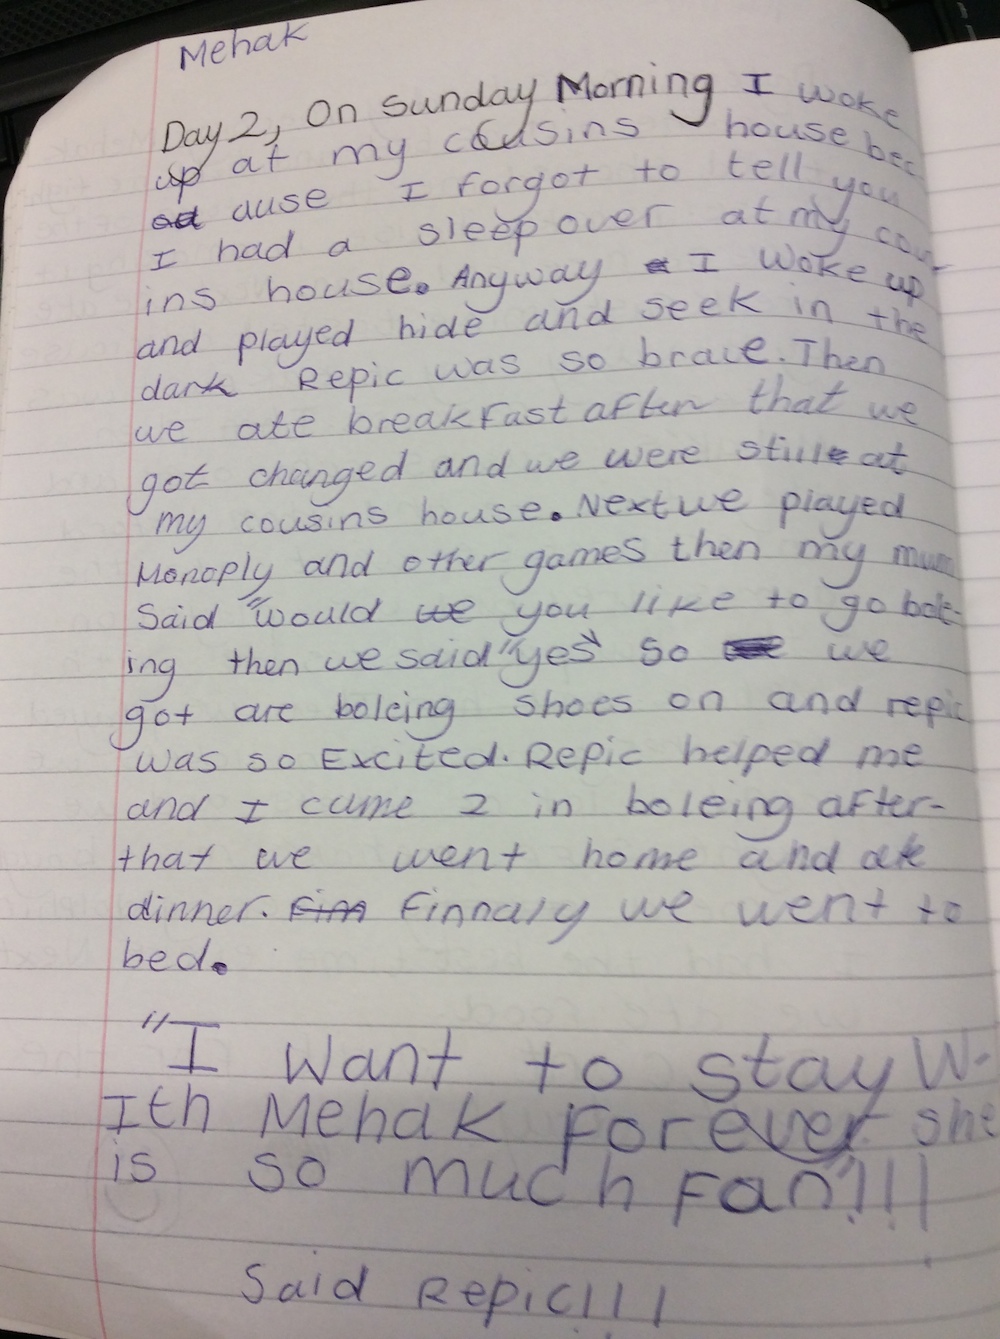 Mehak
Day 2, On Sunday Morning I woke
up at my cousins house bec
ause I forgot to tell you
I had a sleep over at my cous-
ins house. Anyway I woke up
and played hide and seek in the
dark Repic was so brave. Then
we ate breakfast after that we
got changed and we were still at
my cousins house. Next we played
Monoply and other games then my mum
Said "would you like to go bole-
ing then we said "yes" so we
got are boleing shoes on and repic
was so Excited. Repic helped me
and I came 2 in boleing after-
that we went home and ate
dinner. Finnaly we went to
bed.
"I want to stay W-
Ith Mehak Forever she
is so much Fan"!!!
Said Repic!!!